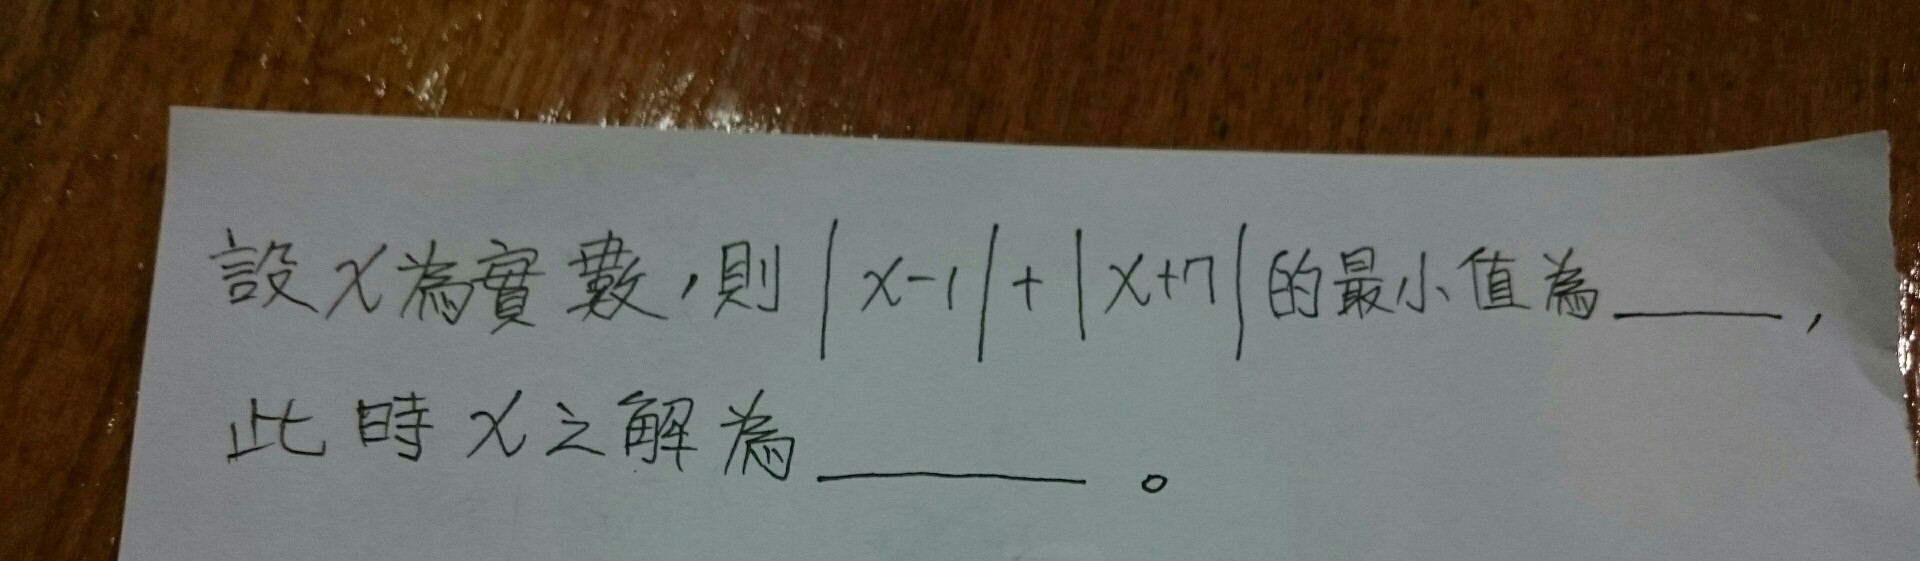 設x為實數,則|x-1|+|x+7|的最小值為____,
此時x之解為____。